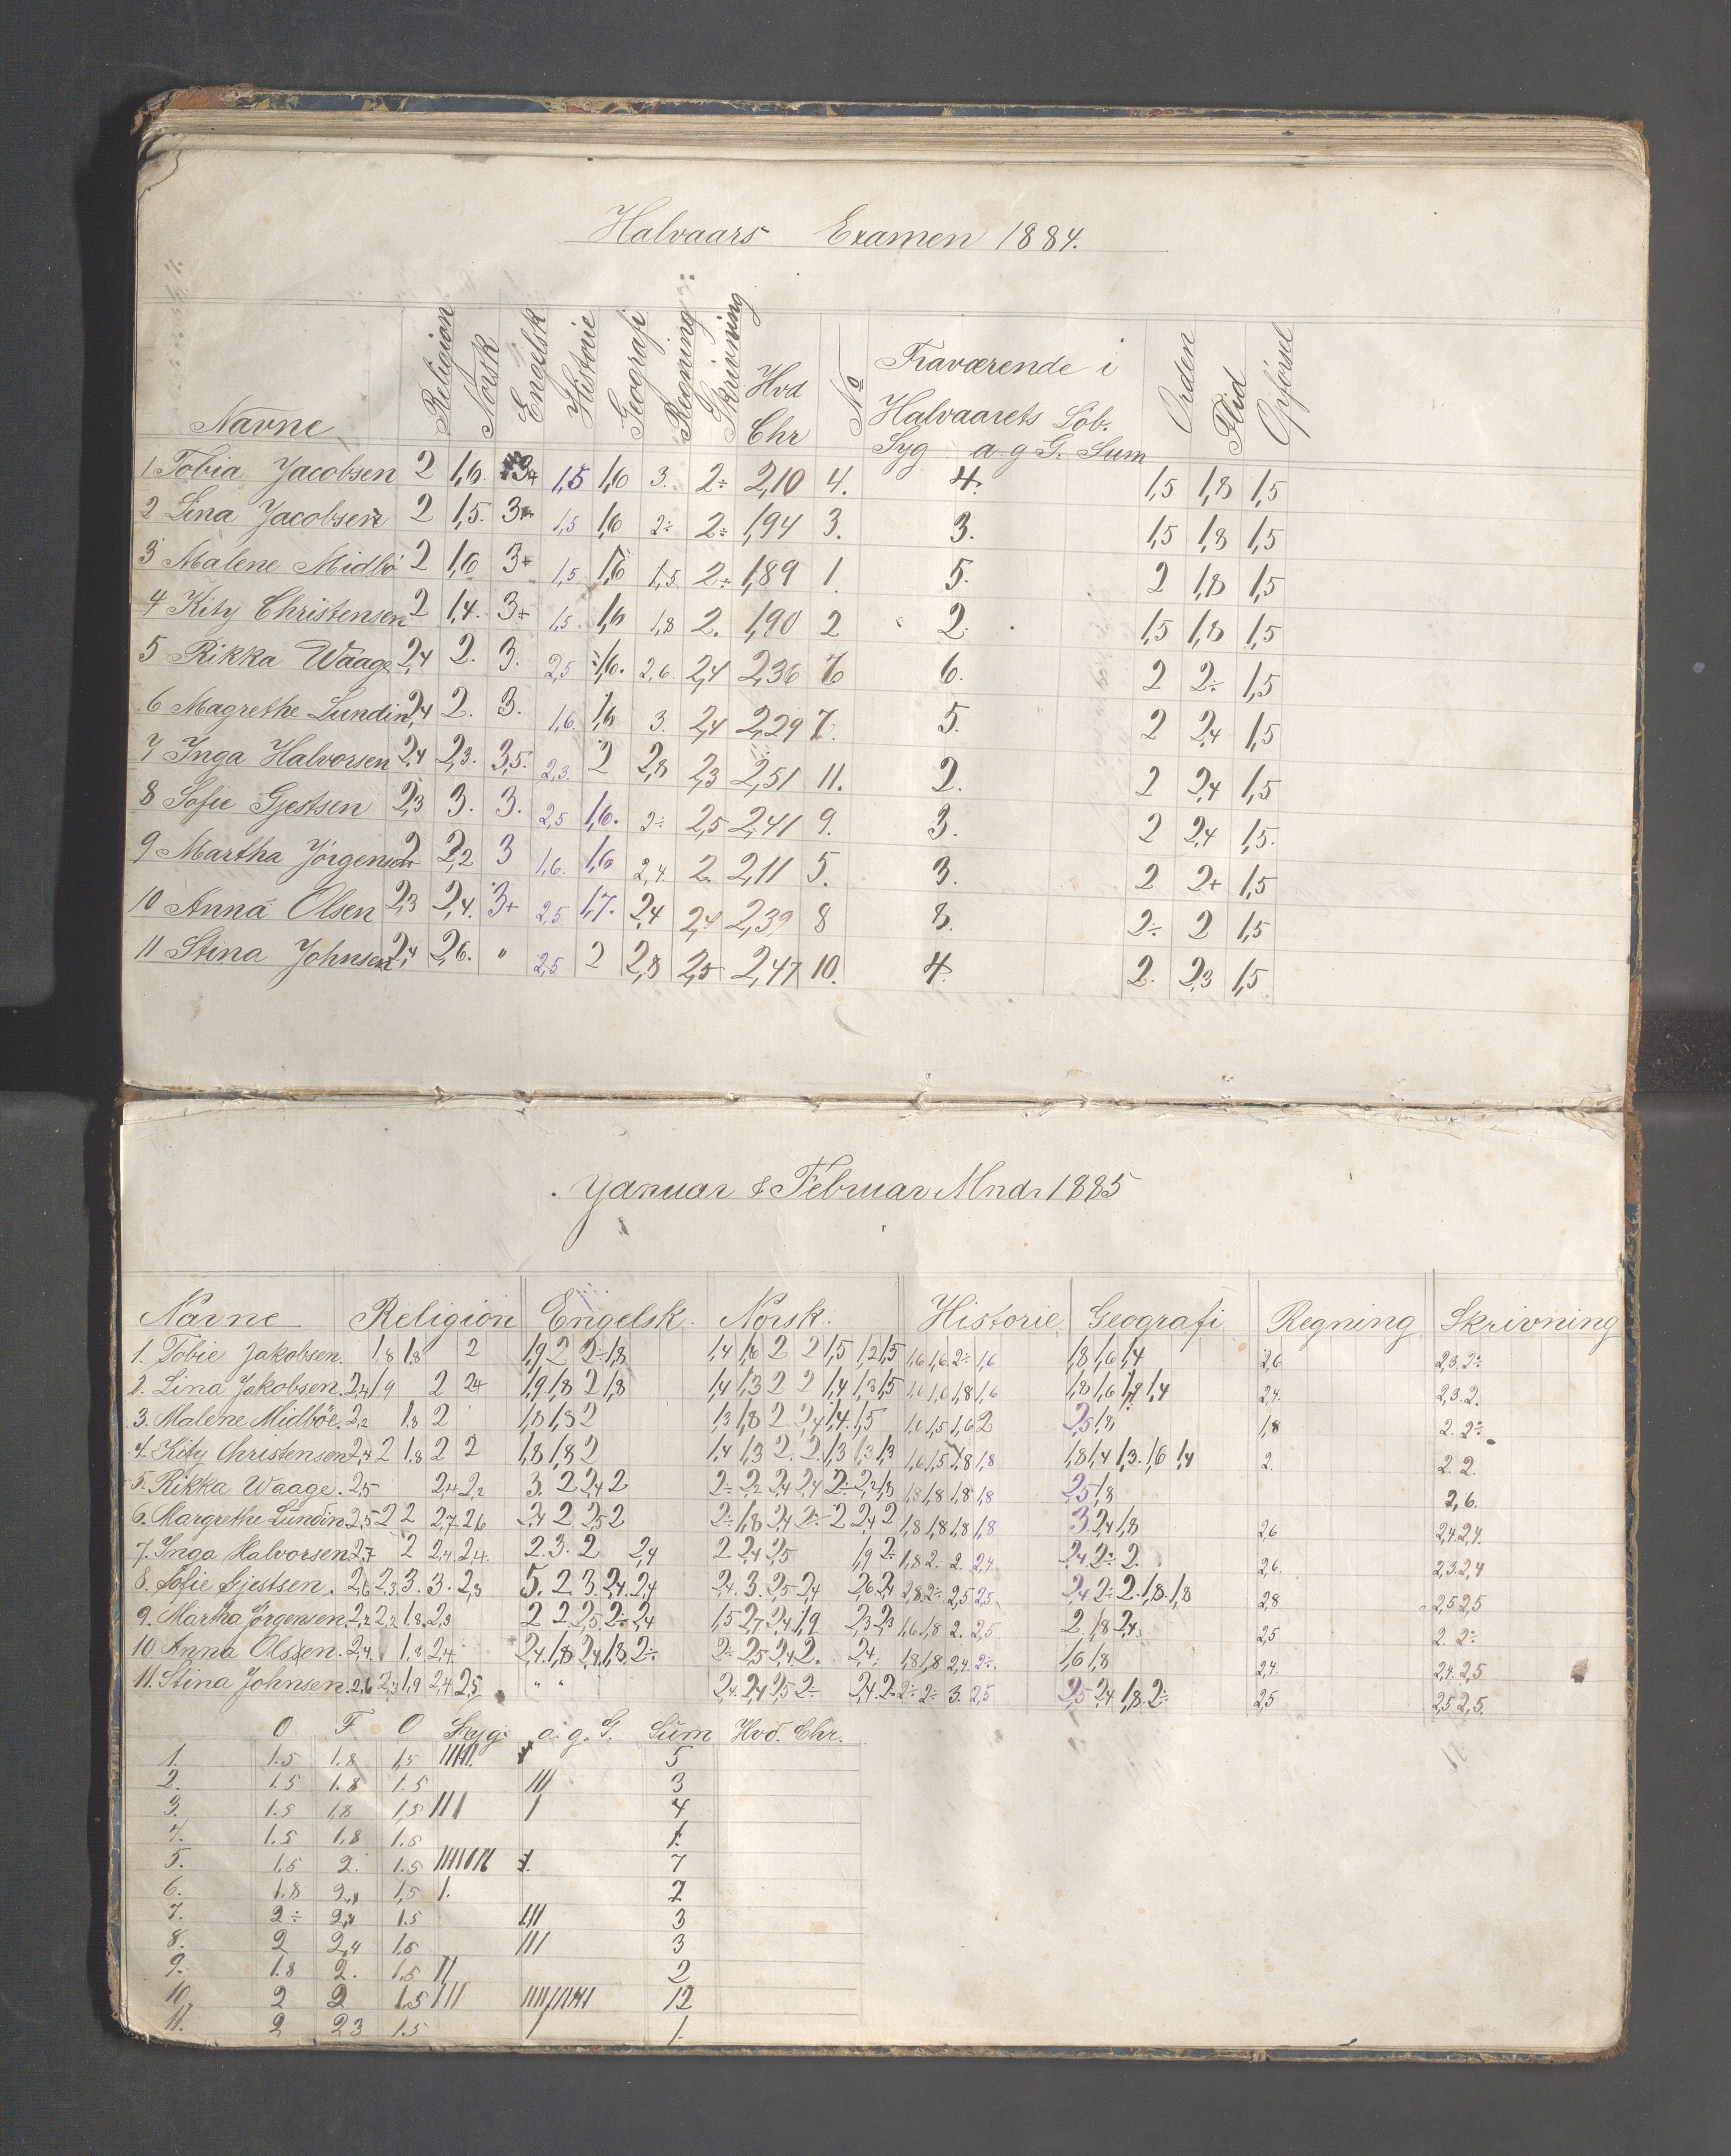 Halvaars Examen 1884.
Navne Religion Norsk Engelsk Historie Geografi Regning Skrivning Hvd Chr No Fraværende i Halvaarets Löb. Syg a. g G. Sum Orden Flid Opförsel
1 Tobia Jacobsen 2 1,6. 3+ 1,5 1,6 3. 2÷ 2,10 4. 4. 1,5 1,8 1,5
2 Lina Jacobsen 2 1,5. 3+ 1,5 1,6 2÷ 2÷ 1,94 3. 3. 1,5 1,8 1,5
3 Malene Midbö 2 1,6 3+ 1,5 1,6 1,5 2÷ 1,89 1 5. 2 1,8 1,5
4 Kity Christensen 2 1,4. 3+ 1,5. 1,6 1,8 2. 1,90 2 2. 1,5 1,8 1,5
5 Rikka Waage 2,4 2. 3. 2,5 1,6. 2,6. 2,4 2,36 6. 2 2÷ 1,5
6 Magrethe Lundin 2,4 2. 3. 1,6. 1,6 3. 2,4 2,29 7. 5. 2 2,4 1,5
7 Inga Halvorsen 2,4 2,3. 3,5. 2,3. 2 2,8 2,3 2,51 11. 2. 2 2,4 1,5
8 Sofie Gjestsen 2,3 3. 3. 2,5 1,6. 2÷ 2,5 2,41 9. 3. 2 2,4 1,5.
9 Martha Jörgensen 2 2,2 3 1,6. 1,6 2,4. 2. 2,11 5. 3. 2 2+ 1,5
10 Anna Olsen 2,3 2,4. 3+ 2,5 1,7. 2,4 2,4 2,39 8 8. 2÷ 2 1,5
11 Stina Johnsen 2,4 2,6. " 2,5 2 2,8 2,5 2,47 10. 4. 2. 2,3 1,5
Januar & Februar Mndr 1885
Navne Religion Engelsk. Norsk. Historie Geografi Regning Skrivning
1. Tobie Jakobsen. 1,8 1,8 2 1,9 2 2÷ 1,8 1,4 1,6 2 2 1,5 1,2 1,5 1,6 1,6. 2÷ 1,6 1,8 1,6 1,4 2,6 2,3. 2÷
2. Lina Jakobsen. 2,4 1,9 2 2,4 1,9 1,8 2 1,8 1,4 1,3 2 2 1,4 1,3 1,5 1,6 1,6 1,8 1,6 1,8 1,6 1,4 1,4 2,4. 2,3. 2.
3. Malene Midböe. 2,2 1,8 2 1,8 1,8 2 1,3 1,8 2 2,4 1,4. 1,5 1,6 1,5 1,6 2 2,5 1,8 1,8 2. 2÷
4. Kity Christensen 2,4 2 1,8 2 2 1,8 1,8 2 1,4 1,3 2. 2. 1,3 1,3 1,3 1,6 1,5 1,8 1,8 1,8 1,4 1,3. 1,6 1,4 2. 2. 2.
5. Rikka Waage. 2,5 2,4 2,2 3. 2 2,4 2 2÷ 2,2 2,4 2,4 2÷ 2,2 1,8 1,8 1,8 1,8 1,8 2,5 1,8 2,6.
6. Margrethe Lundin 2,5 2 2 2,7 2,6 2,4 2 2,5 2 2÷ 1,8 2,4 2÷ 2 2,4 2 1,8 1,8 1,8 1,8 3 2,4 1,8 2,6 2,4. 2,4.
7. Inga Halvorsen 2,7 2 2,4. 2,4. 2. 3. 2 2,4 2 2,4 2,5 1,9 2÷ 1,8 2÷ 2. 2,4. 2,4 2÷ 2. 2,6. 2,3. 2,4
8. Sofie Gjestsen. 2,6 2,3 3. 3. 2,3 5. 2. 3. 2,4. 2,4 2,4. 3. 2,5 2,4 2,6 2,4 2,8 2÷ 2,5 2,5 2,4 2÷ 2. 1,8. 1,8 2,8 2,5 2,5
9. Martha Jörgensen. 2,2 2,2 1,8. 2,3 2 2 2,5 2÷ 2,4 1,5 2,7 2,4 1,9 2,3 2,3 1,6 1,8 2. 2,5 2. 1,8 2,4. 2,5 2. 2÷
10 Anna Olssen. 2,4. 1,8 2,4. 2,4. 1,8 2,4. 1,8. 2÷. 2÷ 2,5 2,4 2. 2,4. 1,8 1,8 2,4. 2÷. 1,6 1,8 2,4. 2,4. 2,5
11. Stina Johnsen. 2,6 2,3 1,9 2,4 2,5 " " 2,4. 2,4 2,5 2÷ 2,4. 2. 2÷ 2÷ 3. 2,5 2,5 2,4 1,8. 2÷ 2,5 2,5 2,5.
O F O Syg. a. g. G. Sum Hvd. Chr.
1. 1.5 1.8 1,5 5
2. 1.5 1.8 1.5 /// 3
3. 1.5 1,8 1,5 /// / 4
4. 1.5 1,8 1.5 1.
5. 1,5 2. 1.5 7
6. 1.8 2,4 1,5 1. 2
7. 2÷ 2,4 1.5 /// 3
8. 2 2,4 1.5 /// 3
9. 1.8 2. 1,5 // 2
10. 2 2 1.5 /// ///////// 12
11. 2 2 3 1.5 / 1.